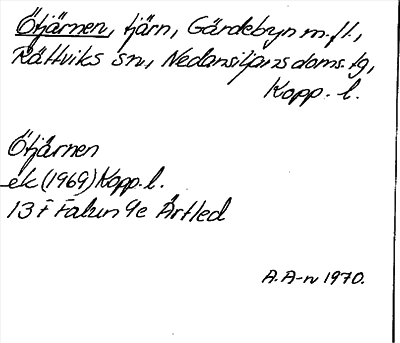 Ötjärnen, tjärn, Gärdebyn m.fl.,
Rättviks sn, Nedansiljans doms. tg,
Kopp. l.
Ötjärnen
ek (1969) Kopp. l.
13 F Falun 9e Ärtled
A. A-n 1970.